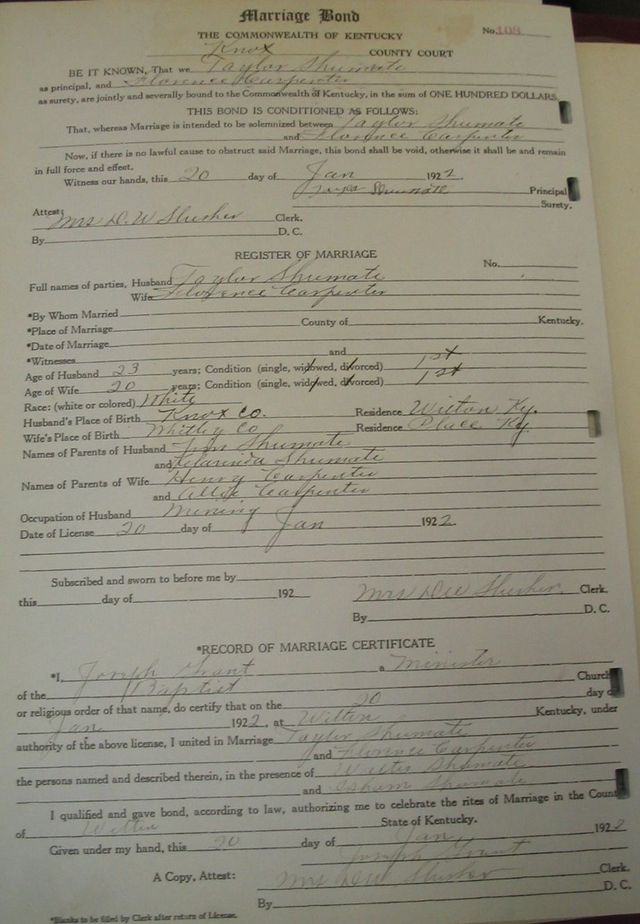 Marriage Bond
THE COMMONWEALTH OF KENTUCKY
No. 108
Knox COUNTY COURT
BE IT KNOWN, That we Taylor Shumate
as principal, and Florence Carpenter
as surety, are jointly and severally bound to the Commonwealth of Kentucky, in the sum of ONE HUNDRED DOLLARS.
THIS BOND IS CONDITIONED AS FOLLOWS:
That, whereas Marriage is intended to be solemnized between Taylor Shumate
and Florence Carpenter
Now, if there is no lawful cause to obstruct said Marriage, this bond shall be void, otherwise it shall be and remain
in full force and effect.
Witness our hands, this 20 day of Jan 1922.
Shumate Principal
Surety.
Attest: Mrs D. W Slusher Clerk.
By D. C.
REGISTER OF MARRIAGE
No.
Full names of parties, Husband Taylor Shumate
Wife Florence Carpenter
*By Whom Married
*Place of Marriage County of Kentucky.
*Date of Marriage
*Witnesses and
Age of Husband 23 years; Condition (single, widowed, divorced) 1st
Age of Wife 20 years; Condition (single, widowed, divorced) 1st
Race: (white or colored) White
Husband's Place of Birth Knox Co. Residence Wilton Ky.
Wife's Place of Birth Whitley Co Residence Place Ky.
Names of Parents of Husband Shumate
and Clarinda Shumate
Names of Parents of Wife Henry Carpenter
and Carpenter
Occupation of Husband Mining
Date of License 20 day of Jan 1922.
Subscribed and sworn to before me by
this day of 192
Mrs Slusher Clerk.
By D. C.
*RECORD OF MARRIAGE CERTIFICATE
*I, Joseph Grant a Minister
of the Baptist Church
or religious order of that name, do certify that on the 20 day of
Jan 1922, at Wilton Kentucky, under
authority of the above license, I united in Marriage Taylor Shumate
and Florence Carpenter
the persons named and described therein, in the presence of Shumate
and Isham Shumate
I qualified and gave bond, according to law, authorizing me to celebrate the rites of Marriage in the Count
of State of Kentucky.
Given under my hand, this 20 day of Jan 1922
Joseph Grant
A Copy, Attest: Mrs Slusher Clerk.
By D. C.
*Blanks to be filled by Clerk after return of License.